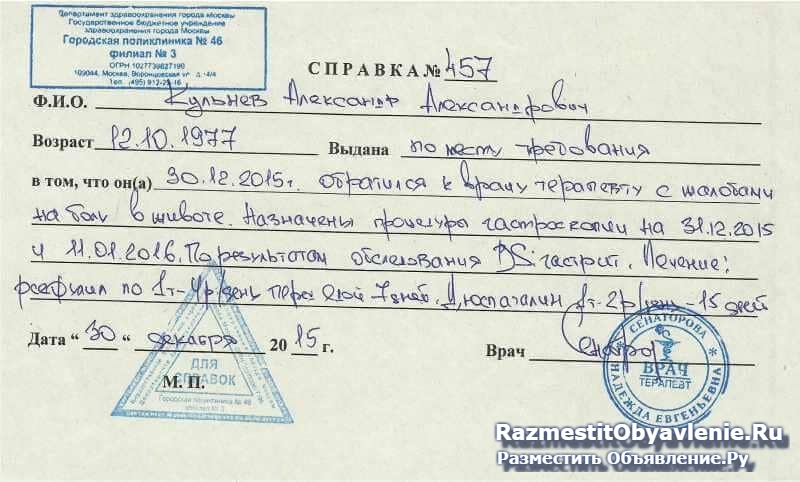 Департамент здравоохранения города Москвы
Государственное бюджетное учреждение
здравоохранения города Москвы
Городская поликлиника № 46
филиал № 3
ОГРН 1027739827199
109044, Москва, Воронцовская ул
Тел. (495) 912-
СПРАВКА № 457
Ф.И.О. Кульнев Александр Александрович
Возраст 12.10.1977 Выдана по месту требования
в том, что он(а) 30.12.2015г. обратился к врачу терапевту с жалобами
на боли в животе. Назначены процедуры гастроскопии на 31.12.2015
и 11.01.2016. По результатам обследования DS: гастрит. Лечение:
по 1т-4р/день перед едой 7 2р/день - 15 дней
Дата “ 30 “ декабря 20 15 г. Врач
ДЛЯ
СПРАВОК
М. П.
Городская поликлиника № 46
филиал № 3
СЕНАТОРОВА
НАДЕЖДА ЕВГЕНЬЕВНА
ВРАЧ
ТЕРАПЕВТ
RazmestitObyavlenie.Ru
Разместить Объявление.Ру